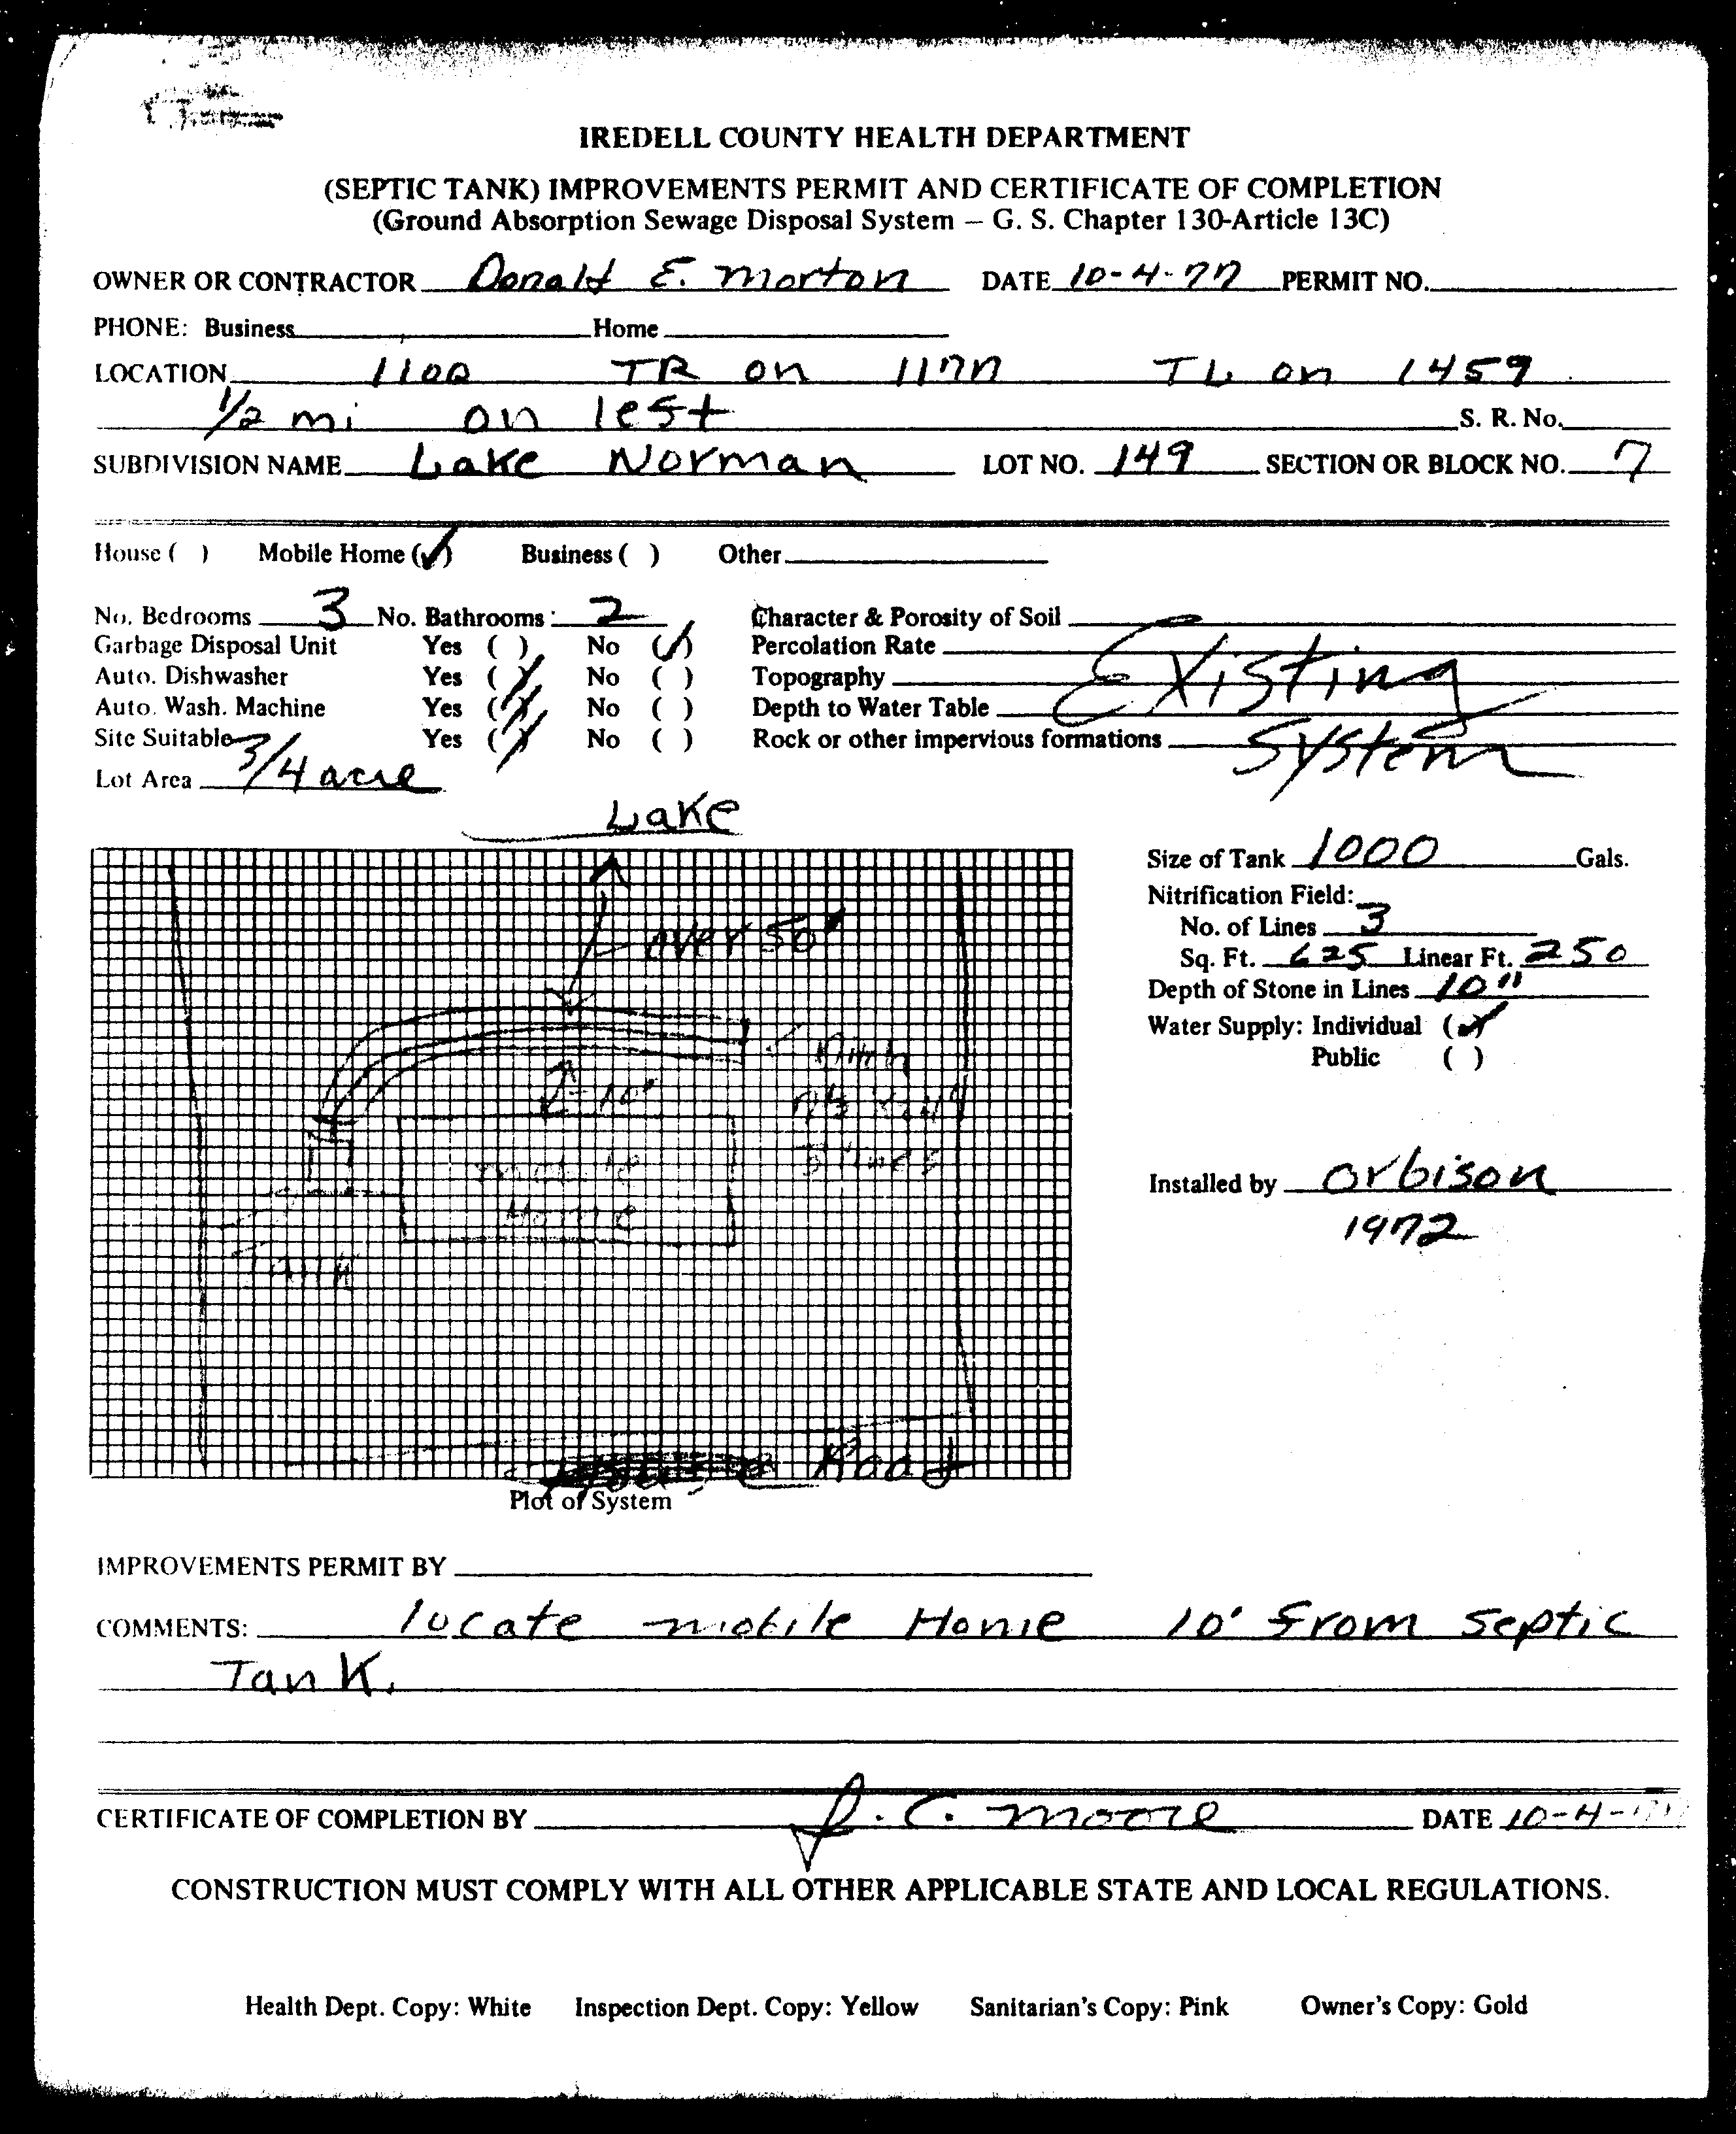 IREDELL COUNTY HEALTH DEPARTMENT
(SEPTIC TANK) IMPROVEMENTS PERMIT AND CERTIFICATE OF COMPLETION
(Ground Absorption Sewage Disposal System – G. S. Chapter 130-Article 13C)
OWNER OR CONTRACTOR Donald E. Morton DATE 10-4-77 PERMIT NO.
PHONE: Business Home
LOCATION 1100 TR on 1177 TL on 1459
1/2 mi on left S. R. No.
SUBDIVISION NAME Lake Norman LOT NO. 149 SECTION OR BLOCK NO. 7
House ( ) Mobile Home (✓) Business ( ) Other
No. Bedrooms 3 No. Bathrooms 2 Character & Porosity of Soil
Garbage Disposal Unit Yes ( ) No (✓) Percolation Rate
Existing
Auto. Dishwasher Yes (✓) No ( ) Topography
Auto. Wash. Machine Yes (✓) No ( ) Depth to Water Table
Site Suitable Yes (✓) No ( ) Rock or other impervious formations
System
Lot Area 3/4 acre
Lake
Size of Tank 1000 Gals.
Nitrification Field:
No. of Lines 3
over 50'
Sq. Ft. 625 Linear Ft. 250
Depth of Stone in Lines 10"
Water Supply: Individual (✓)
Public ( )
10'
Mobile
3 lines
Installed by Orbison
Home
1972
Tank
Road
Plot of System
IMPROVEMENTS PERMIT BY
COMMENTS: locate mobile Home 10' from septic
Tank.
CERTIFICATE OF COMPLETION BY J. C. Moore DATE 10-4-77
CONSTRUCTION MUST COMPLY WITH ALL OTHER APPLICABLE STATE AND LOCAL REGULATIONS.
Health Dept. Copy: White Inspection Dept. Copy: Yellow Sanitarian's Copy: Pink Owner's Copy: Gold